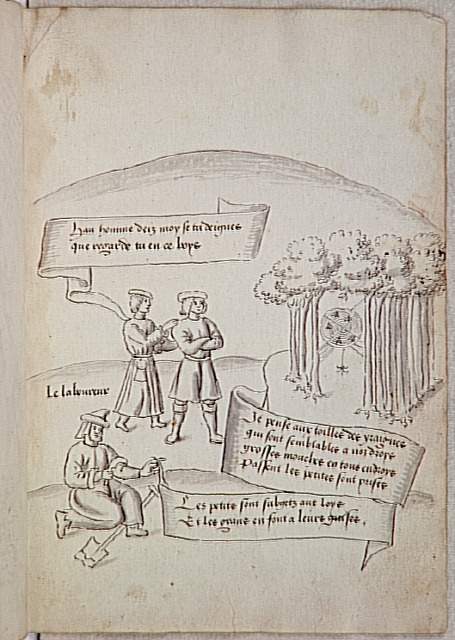 Hau homme deiz moy se tu deignes
Que regarde tu en ce boys
Le laboureur
Je pense aux toilles des yraignes
Qui sont semblables a noz droys
Grosses mousches en tous endroys
Passent les petites sont prises
Les petits sont subgetz aux loys
Et les grans en font a leurs guises.